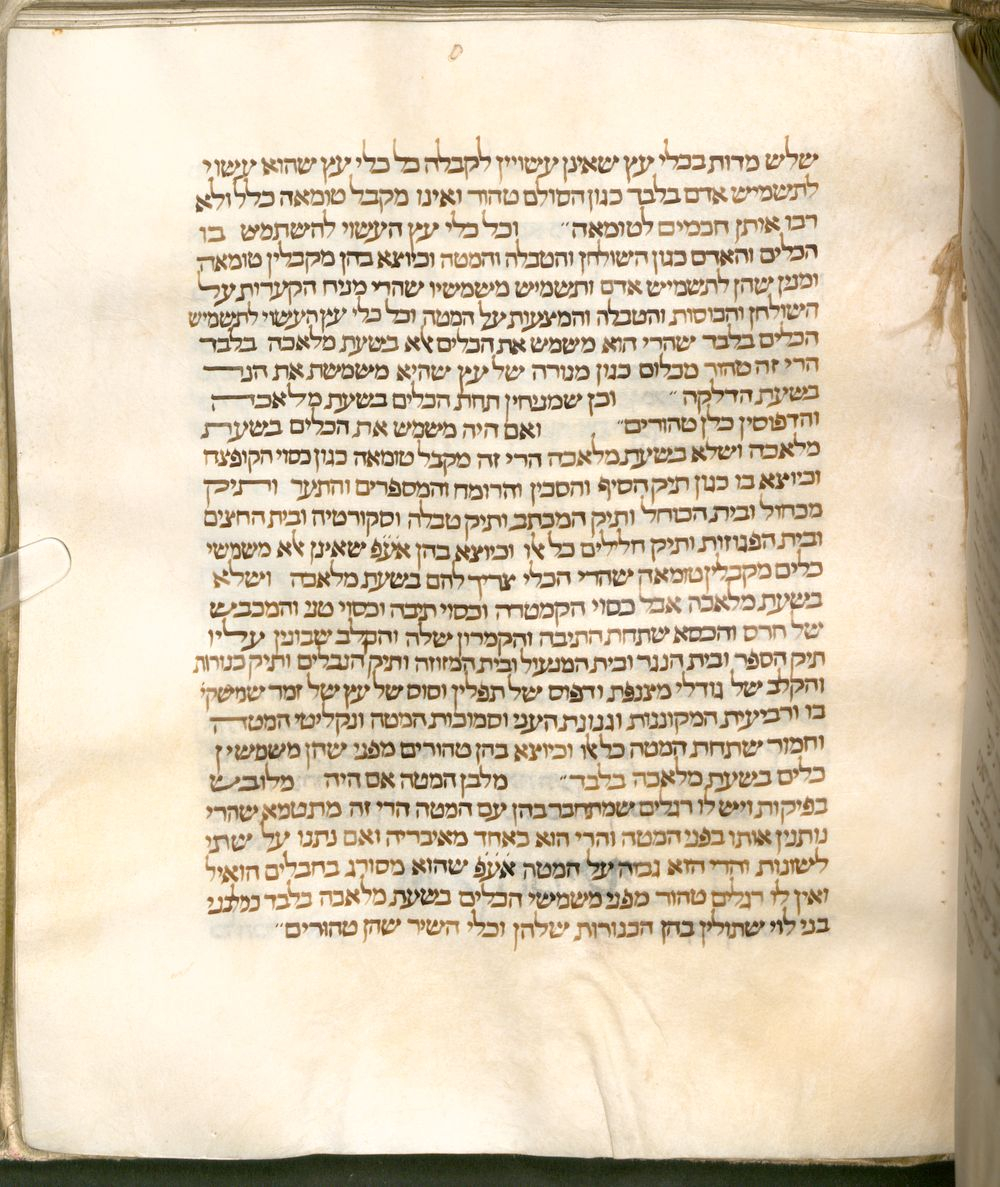 שלש מדות בכלי עץ שאינן עשויין לקבלה כל כלי עץ שהוא עשוי
לתשמיש אדם בלבד כגון הסולם טהור ואינו מקבל טומאה כלל ולא
רבו אותן חכמים לטומאה״ וכל כלי עץ העשוי להשתמש בו
הכלים והאדם כגון השולחן והטבלה והמטה וכיוצא בהן מקבלין טומאה
ומנין שהן לתשמיש אדם ותשמיש משמשיו שהרי מניח הקערות על
השולחן והכוסות והטבלה והמצעות על המטה וכל כלי עץ העשוי לתשמיש
הכלים בלבד שהרי הוא משמש את הכלים לא בשעת מלאכה בלבד
הרי זה טהור מכלום כגון מנורה של עץ שהיא משמשת את הנר
בשעת הדלקה״ וכן שמניחין תחת הכלים בשעת מלאכה
והדפוסין כלן טהורים״ ואם היה משמש את הכלים בשעת
מלאכה ושלא בשעת מלאכה הרי זה מקבל טומאה כגון כסוי הקופצה
וכיוצא בו כגון תיק הסיף והסכין והרומח והמספרים והתער ותיק
מכחול ובית הכוחל ותיק המכתב ותיק טבלה וסקורטיה ובית החצים
ובית הפגוזות ותיק חלילים כל אלו וכיוצא בהן אע״פ שאינן לא משמשי
כלים מקבלין טומאה שהרי הכלי צריך להם בשעת מלאכה ושלא
בשעת מלאכה אבל כסוי הקמטרה וכסוי תיבה וכסוי טני והמכבש
של חרס והכסא שתחת התיבה והקמרון שלה והקלב שבונין עליו
תיק הספר ובית הנגר ובית המנעול ובית המזוזה ותיק הנבלים ותיק כנורות
והקלב של גודלי מצנפת ודפוס של תפלין וסוס של עץ של זמר שמשקי׳
בו ורביעית המקוננות וגנונת העני וסמוכות המטה ונקליטי המטה
וחמור שתחת המטה כל אלו וכיוצא בהן טהורים מפני שהן משמשין
כלים בשעת מלאכה בלבד״ מלבן המטה אם היה מלובש
בפיקות ויש לו רגלים שמתחבר בהן עם המטה הרי זה מתטמא שהרי
נותנין אותו בפני המטה והרי הוא כאחד מאיבריה ואם נתנו על שתי
לשונות והרי הוא גבוה על המטה אע״פ שהוא מסורג בחבלים הואיל
ואין לו רגלים טהור מפני משמשי הכלים בשעת מלאכה בלבד כמלבני
בני לוי שתולין בהן הכנורות שלהן וכלי השיר שהן טהורים״